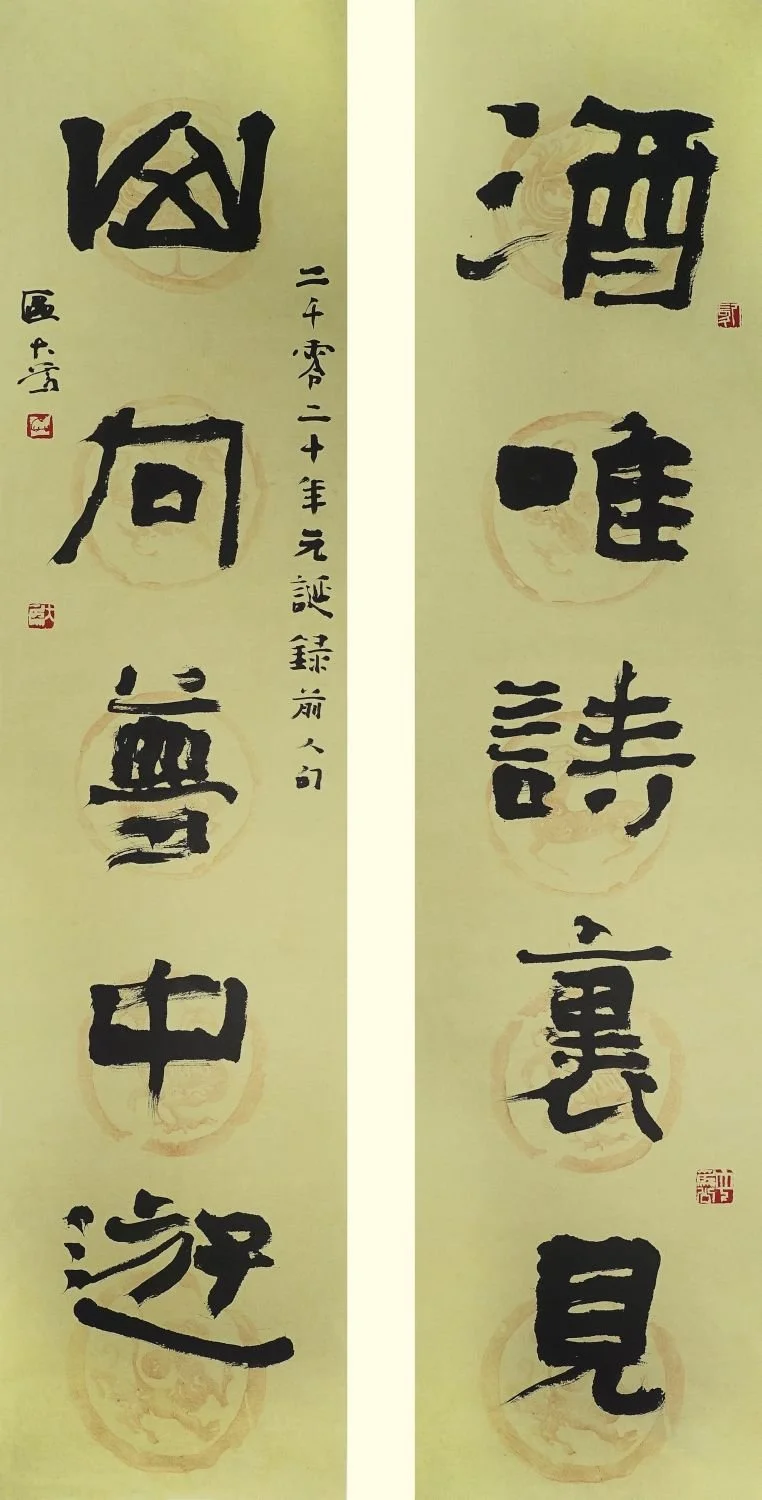 酒唯詩裏見
山向夢中遊
二千零二十年元誕録前人句
區大為